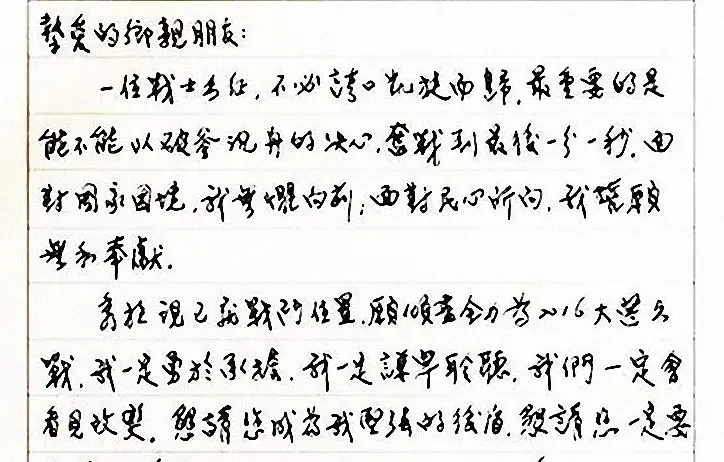 摯愛的鄉親朋友：
一位戰士出征，不必誇口凱旋而歸，最重要的是
能不能以破釜沉舟的決心，奮戰到最後一分一秒。面
對國家困境，我無懼向前；面對民心所向，我願
無私奉獻。
秀柱現已就戰鬥位置，願傾盡全力為2016大選久
戰，我一定勇於承擔，我一定謙卑聆聽，我們一定會
看見改變。懇請您成為我堅強的後盾，懇請您一定要